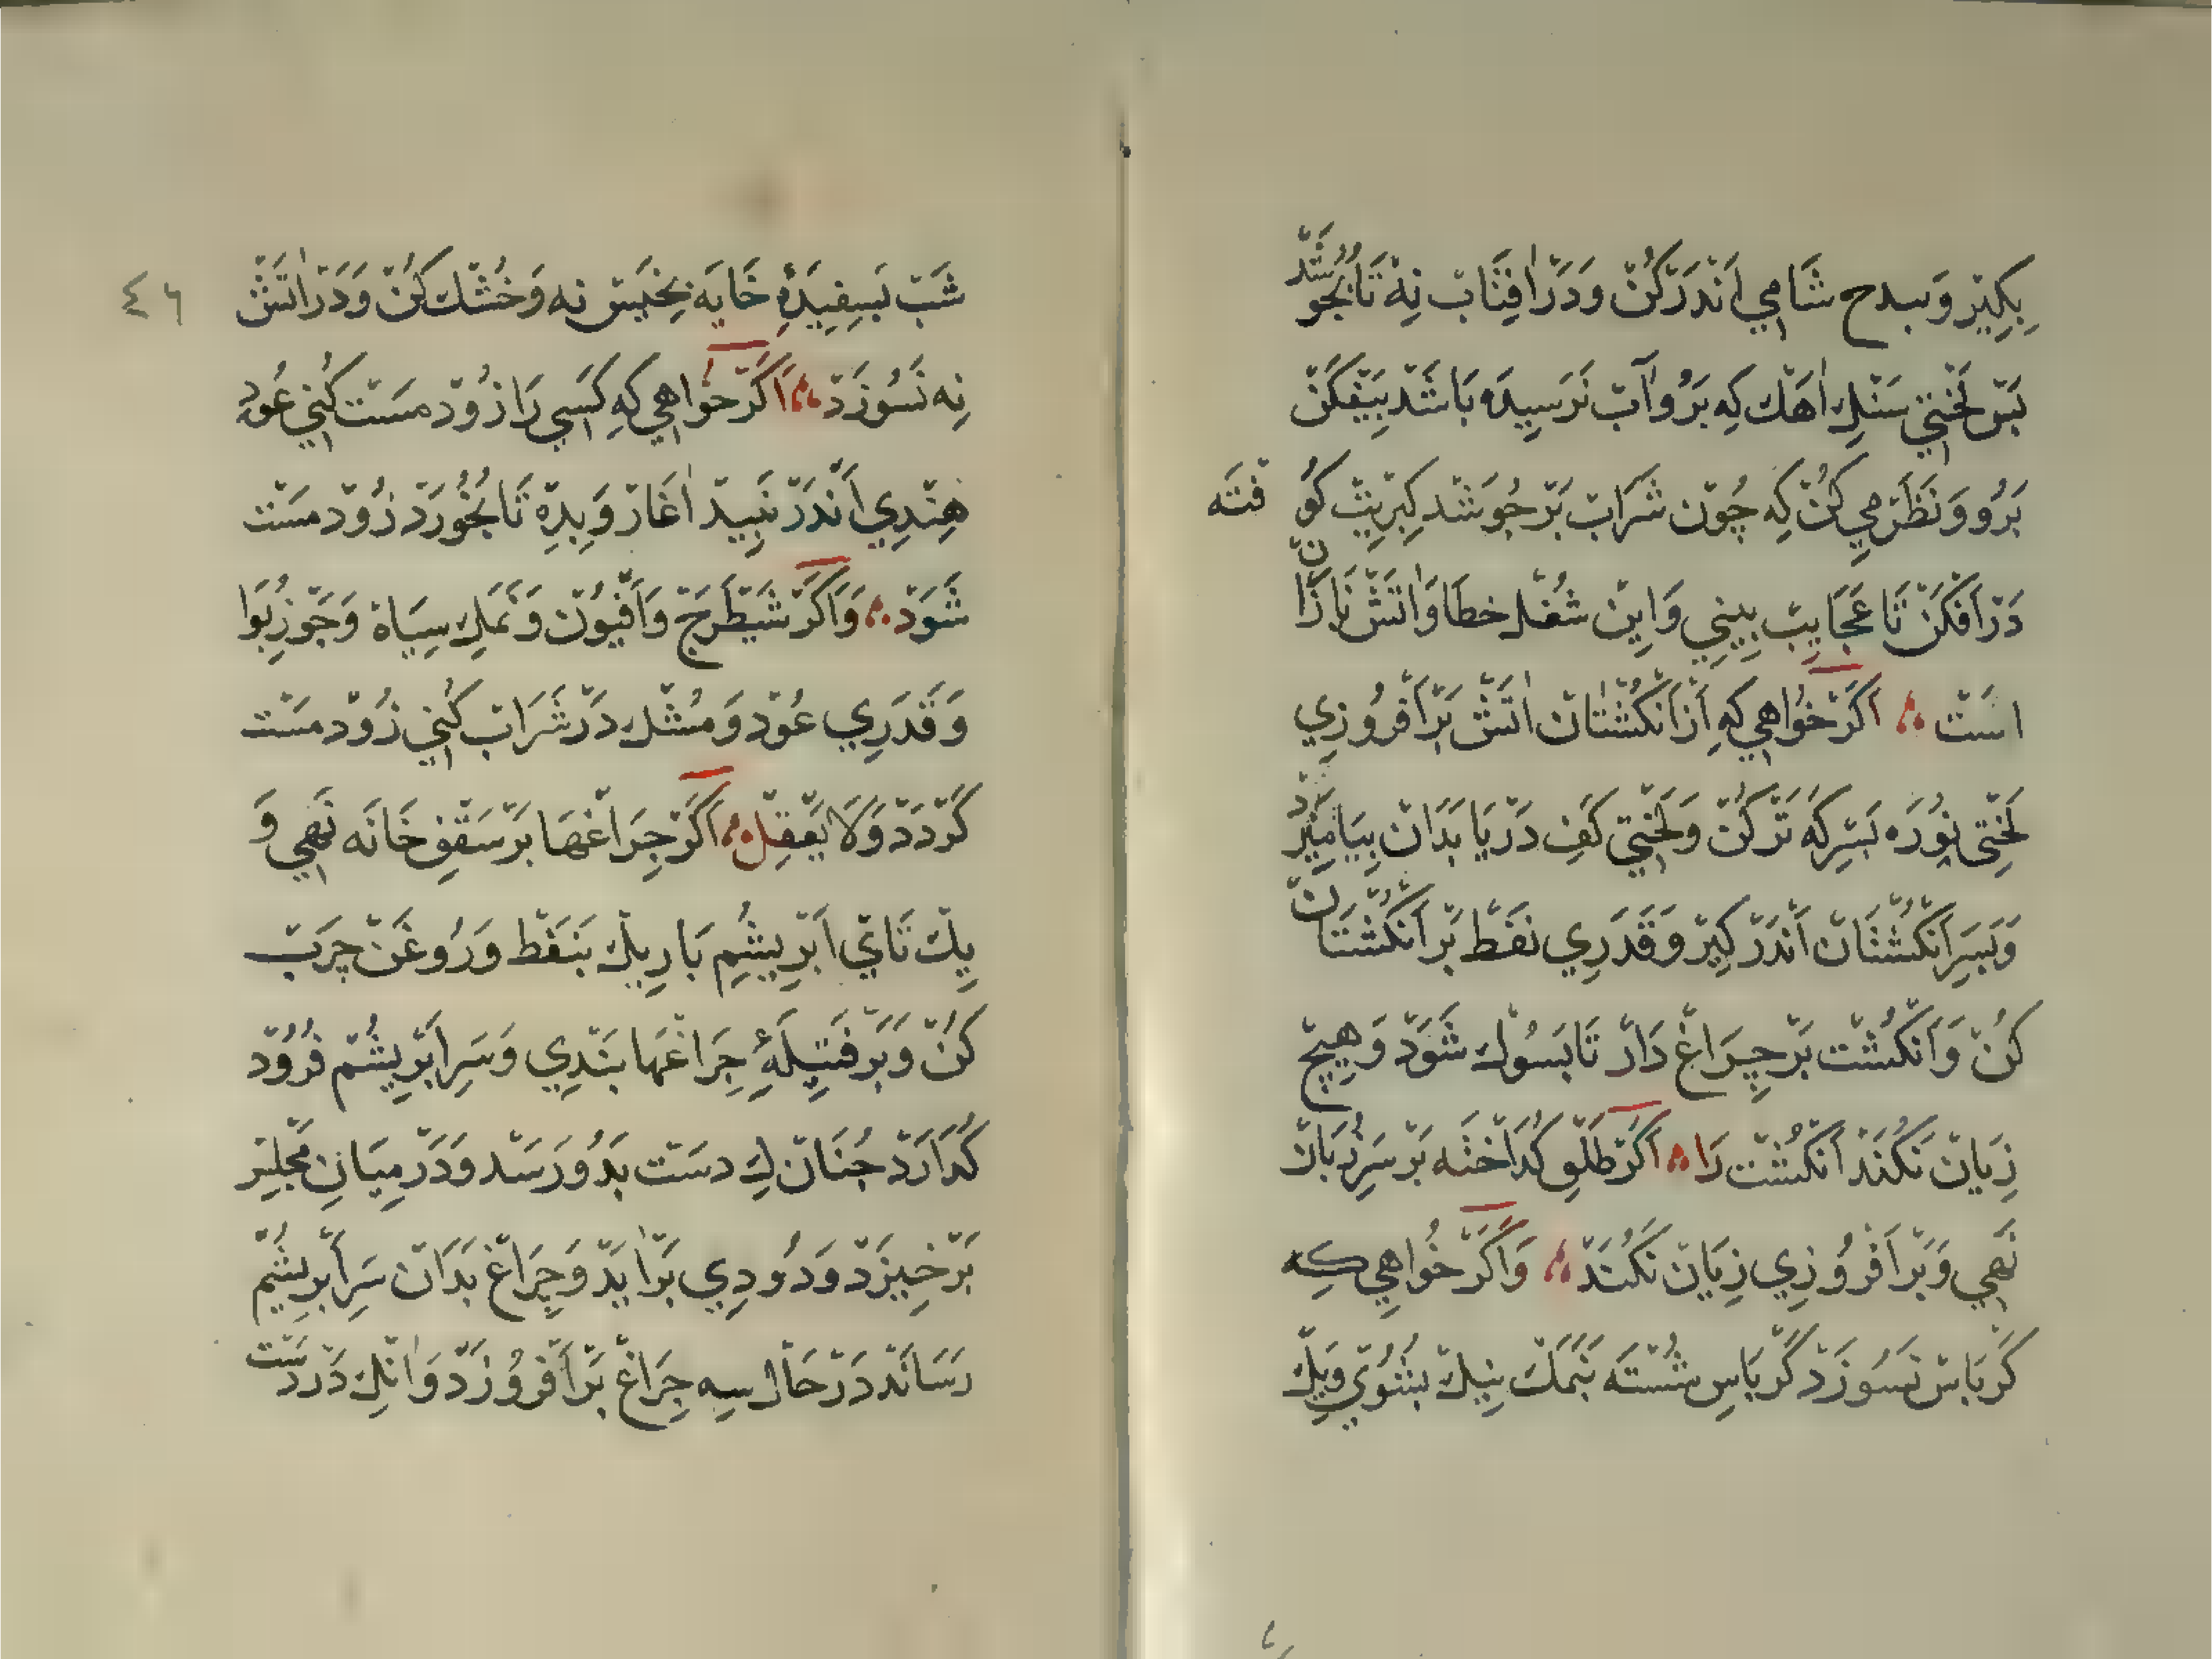 بِكِيرْ وَبىدح شَامِي اَنْدَرْكُنْ وَدَرْ اٰفِتَابْ نِهْ تَا بُجُوشَدْ
بَسْ لَخْتِي سَنْكِ اٰهَكْ كِه بَرُو اٰبْ نَرَسِيدَه بَاشَدْ بِيَفْكَنْ
بَرُو وَنَظَرْ مِي كُنْ كِه چُونْ شَرَابْ بَرْجُوشَدْ كِبْرِيتْ كُوفْتَه
دَرْ اَفْكَنْ تَا عَجَايِبْ بِينِي وَاِينْ شُغْلِ خطَا وَاٰتَشْ نَازَانْ
اسَتْ اَكَرْ خوَاهِي كِه اَزْ اَنْكُشْتَانْ اٰتَشْ بَرْ اَفْرُوزِي
لَخْتِى نُورَه بَسِرْكَه تَرْ كُنْ وَلَخْتِي كَفِ دَرْيَا بَدَانْ بِيَامِيزْ
وَبَسَرِ اَنْكُشْتَانْ اَنْدَرْ كِيرْ وَقَدَرِي نَفْطْ بَرْ اَنْكُشْتَانْ
كُنْ وَاَنْكُشْتْ بَرْ چِرَاغْ دَارْ تَا بَسُوكْ شَوَدْ وَهِيچْ
زِيَانْ نَكُنَدْ اَنْكُشْتْ رَا اَكَرْ طَلْقِ كُدَاخْتَه بَرْ سَرِ زُبَانْ
نَهِي وَبَرْ اَفْرُوزِي زِيَانْ نَكُنَدْ وَاَكَرْ خُواهِي كِه
كَرْبَاسْ نَسُوزَدْ كَرْبَاسِ شُسْتَه بَنَمَكْ نِيكْ بِشُوي وَيَكْ
شَبْ بَسِفِيدَهٔ خَايَه بِخيَسْ نِه وَخُشْك كُنْ وَدَرْ اٰتَشْ
نِه نَسُوزَدْ اَكَرْ خوَاهِي كِه كَسِي رَا زُودْ مَسْت كُنِي عُودِ
هِنْدِي اَنْدَرْ نَبِيدْ اٰغَارْ وَبِدِهْ تَا بُخُورَدْ زُودْ مَسْت
شَوَدْ وَاَكَرْ شَيْطَرَجْ وَاَفْيُونْ وَنَمَكِ سِيَاهْ وَجَوْزِ بُوَا
وَقَدَرِي عُودْ وَمُشْك دَرْ شَرَابْ كُنِي زُودْ مَسْت
كَرْدَدْ وَلَا يَعْقِلْ اَكَرْ چِرَاغْهَا بَرْ سَقْفِ خَانَه نَهِي وَ
يَكْ تَايْ اَبْرِيشُمِ بَارِيكْ بَنَفْط وَرُوغَنْ چَرَبْ
كُنْ وَبَرْ فَتِيلَهٔ چِرَاغْهَا بَنْدِي وَسَرِ اَبْرِيشُمْ فُرُودْ
كُدَارَدْ چُنَانْك دَسَتْ بَدُو رَسَدْ وَدَرْ مِيَانِ مَجْلِسْ
بَرْ خِيزَدْ وَدُودِي بَرْ اٰيَدْ وَچِرَاغْ بَدَانْ سَرِ اَبْرِيشُمْ
رَسَانَدْ دَرْ حَالْ سِه چِرَاغْ بَرْ اَفْرُوزَدْ وَاٰنْك دَرْ دَسْت
٤٦